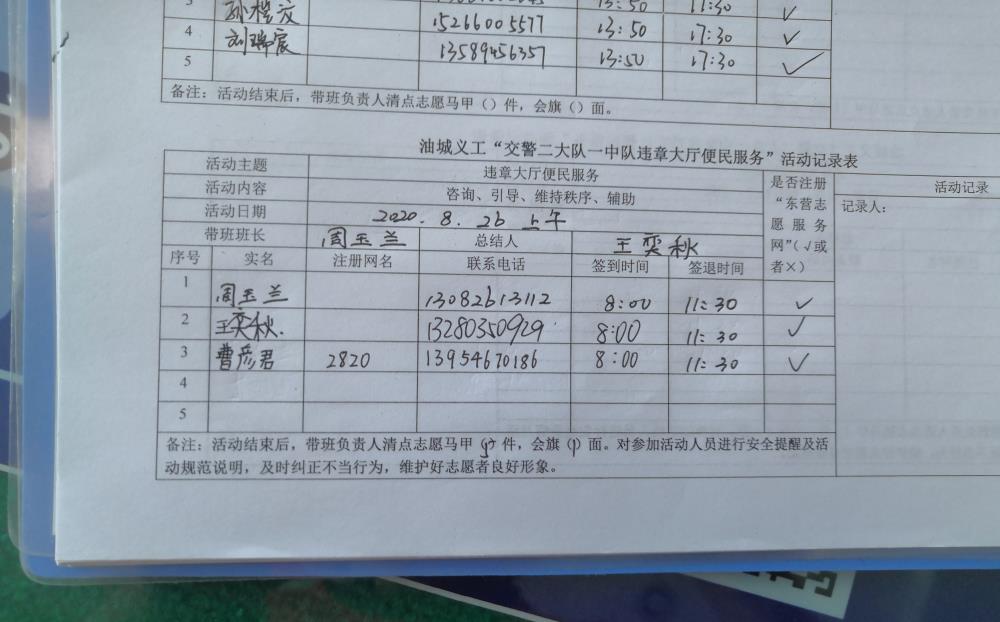 3 孙橙汶 11:30 ✓
4 刘瑞宸 15266005577 13:50 17:30 ✓
5 13589456357 13:50 17:30 ✓
备注：活动结束后，带班负责人清点志愿马甲（）件，会旗（）面。
油城义工“交警二大队一中队违章大厅便民服务”活动记录表
活动主题 违章大厅便民服务 是否注册“东营志愿服务网”（√或者×） 活动记录
活动内容 咨询、引导、维持秩序、辅助 记录人：
活动日期 2020.8.26 上午
带班班长 周玉兰 总结人 王奕秋
序号 实名 注册网名 联系电话 签到时间 签退时间
1 周玉兰 13082613112 8:00 11:30 ✓
2 王奕秋. 13280350929 8:00 11:30 ✓
3 曹彦君 2820 13954670186 8:00 11:30 ✓
4
5
备注：活动结束后，带班负责人清点志愿马甲（）件，会旗（1）面。对参加活动人员进行安全提醒及活
动规范说明，及时纠正不当行为，维护好志愿者良好形象。